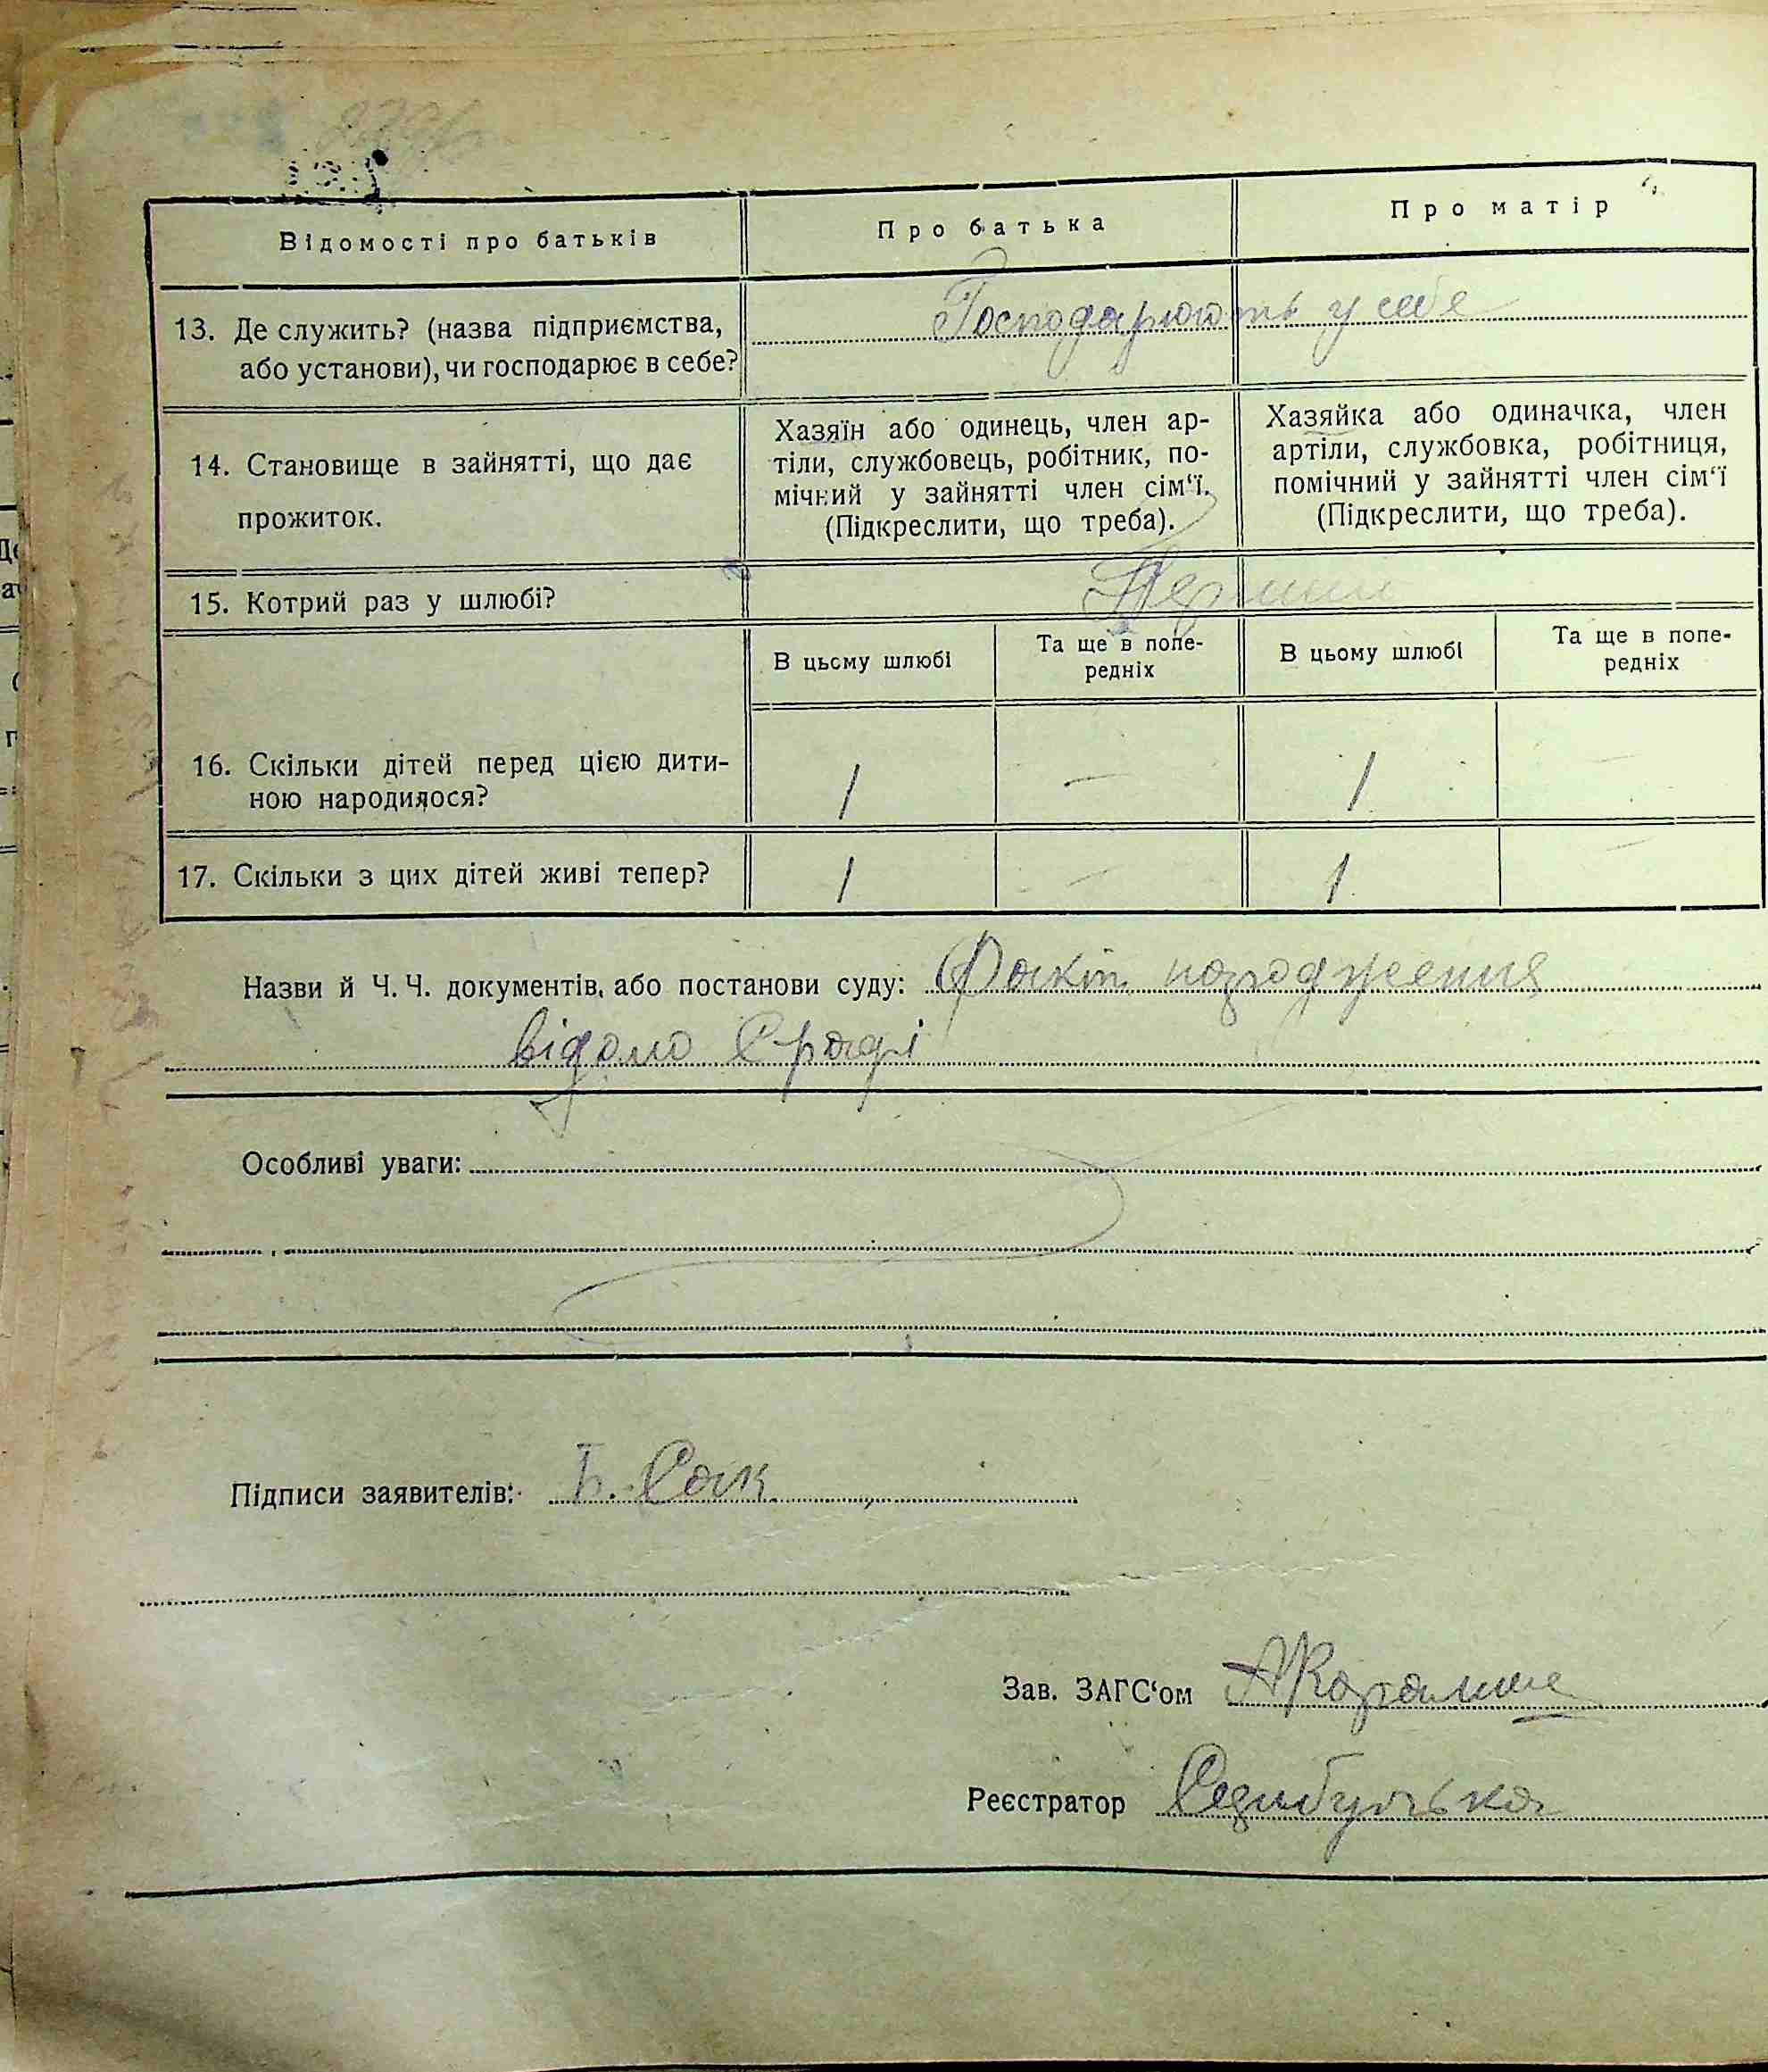 Відомості про батьків
Про батька
Про матір
13. Де служить? (назва підприємства,
або установи), чи господарює в себе?
Господарюють у себе
14. Становище в зайнятті, що дає
прожиток.
Хазяїн або одинець, член ар-
тіли, службовець, робітник, по-
мічний у зайнятті член сім‘ї.
(Підкреслити, що треба).
Хазяйка або одиначка, член
артіли, службовка, робітниця,
помічний у зайнятті член сім‘ї
(Підкреслити, що треба).
15. Котрий раз у шлюбі?
В цьому шлюбі
Та ще в попе-
редніх
В цьому шлюбі
Та ще в попе-
редніх
16. Скільки дітей перед цією дити-
ною народилося?
1 — 1 —
17. Скільки з цих дітей живі тепер?
1 — 1 —
Назви й Ч. Ч. документів, або постанови суду: Факт народження
відомо С раді
Особливі уваги:
Підписи заявителів:
Зав. ЗАГС‘ом
Реєстратор